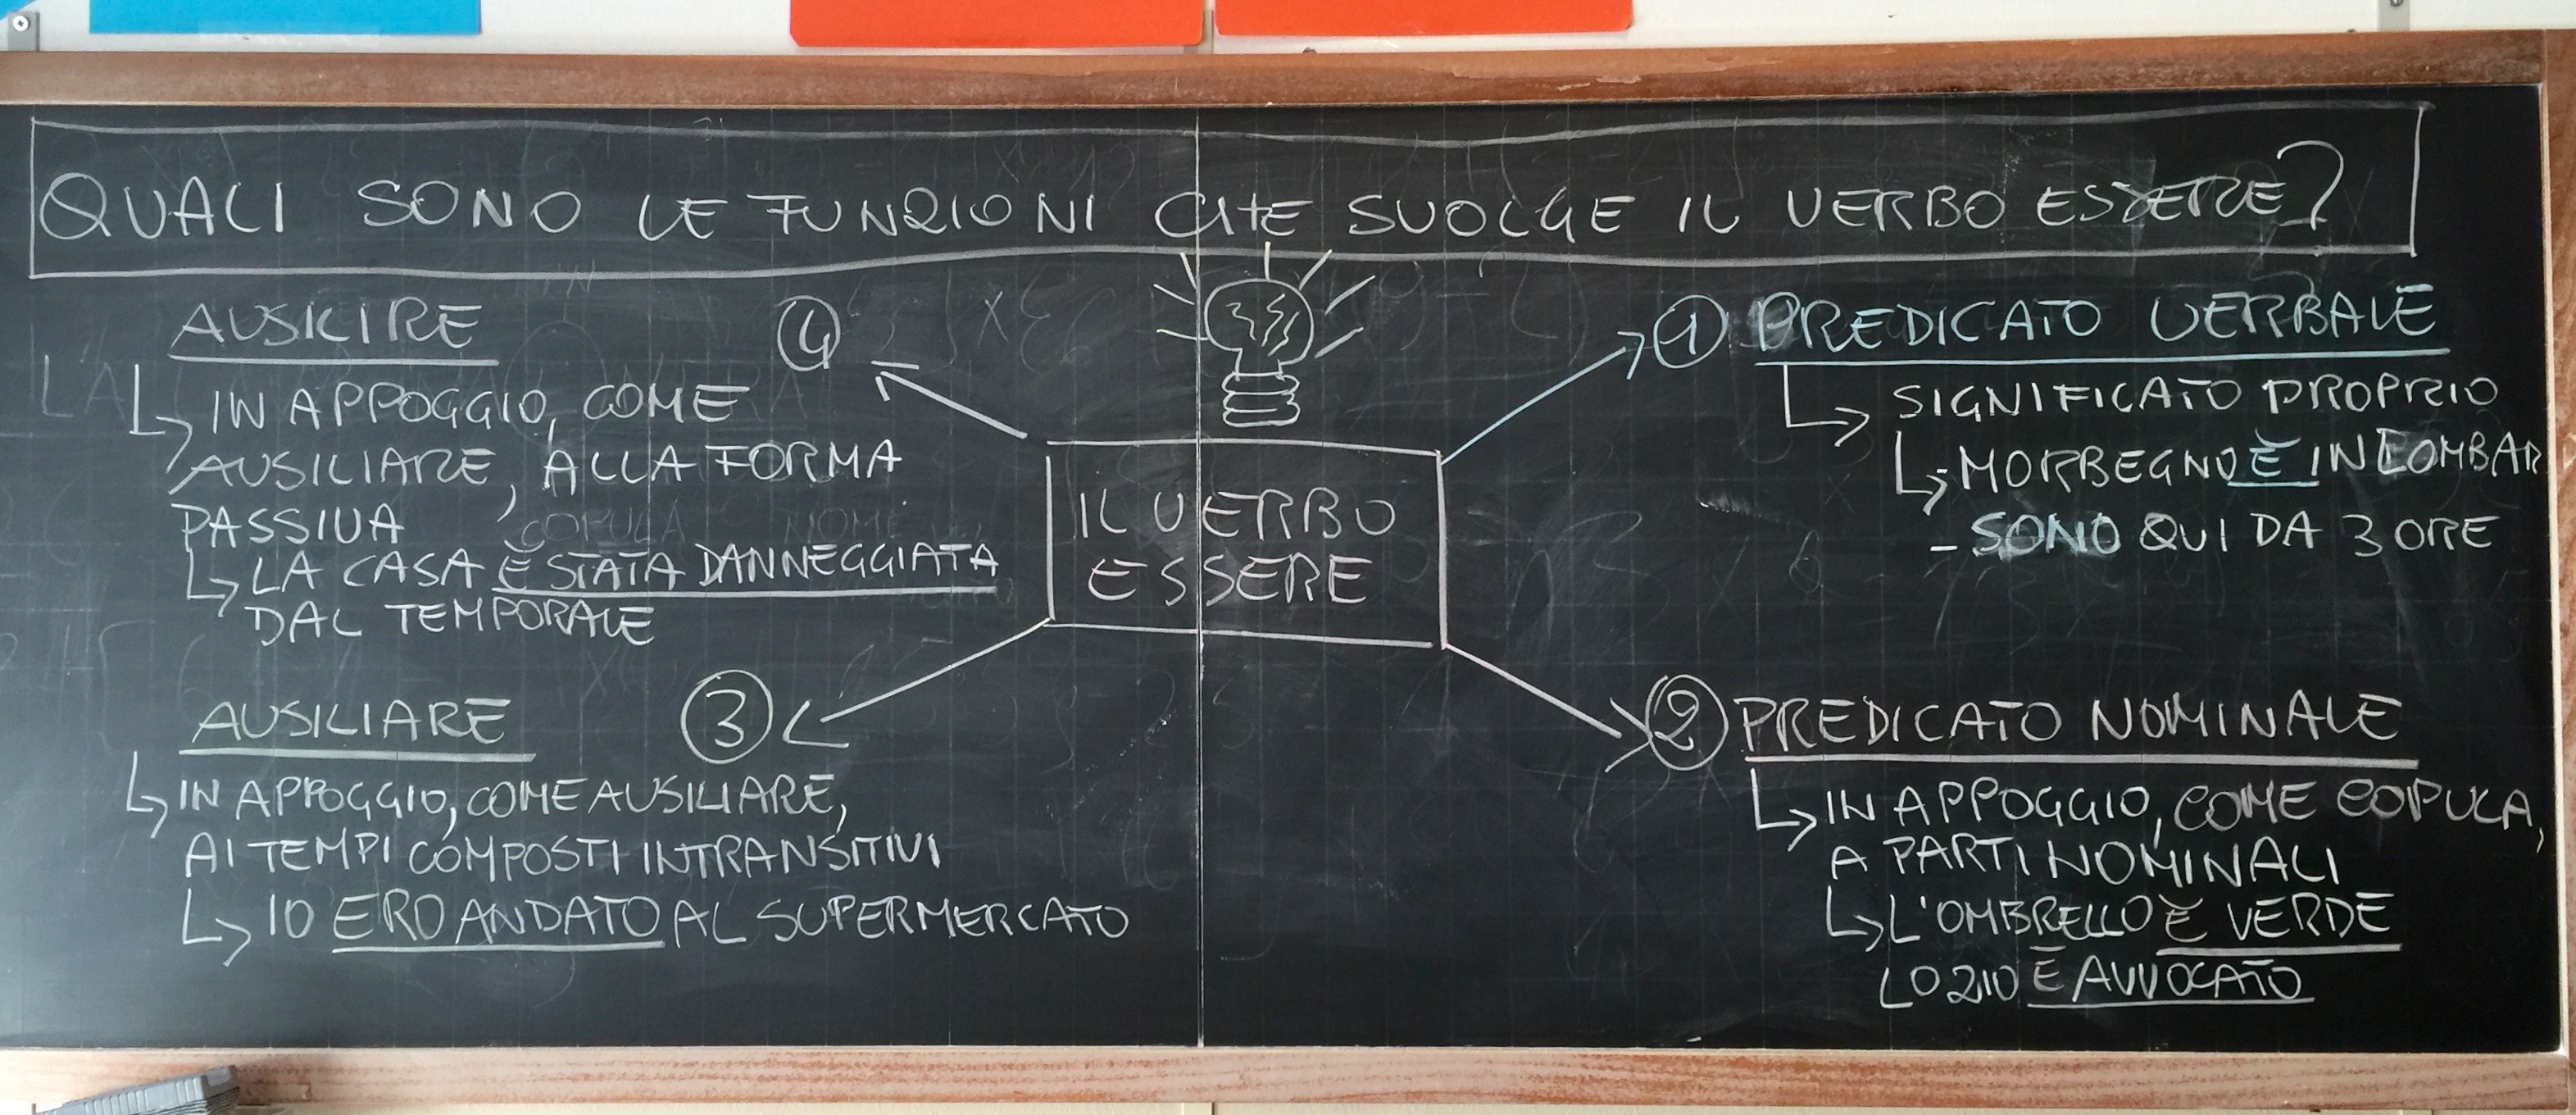 QUALI SONO LE FUNZIONI CHE SVOLGE IL VERBO ESSERE?
IL VERBO
ESSERE
1 PREDICATO VERBALE
SIGNIFICATO PROPRIO
- MORBEGNO È IN LOMBAR
- SONO QUI DA 3 ORE
2 PREDICATO NOMINALE
IN APPOGGIO, COME COPULA,
A PARTI NOMINALI
L'OMBRELLO È VERDE
LO ZIO È AVVOCATO
AUSILIARE 3
IN APPOGGIO, COME AUSILIARE,
AI TEMPI COMPOSTI INTRANSITIVI
IO ERO ANDATO AL SUPERMERCATO
AUSILIRE 4
IN APPOGGIO, COME
AUSILIARE, ALLA FORMA
PASSIVA
COPULA NOME
LA CASA È STATA DANNEGGIATA
DAL TEMPORALE